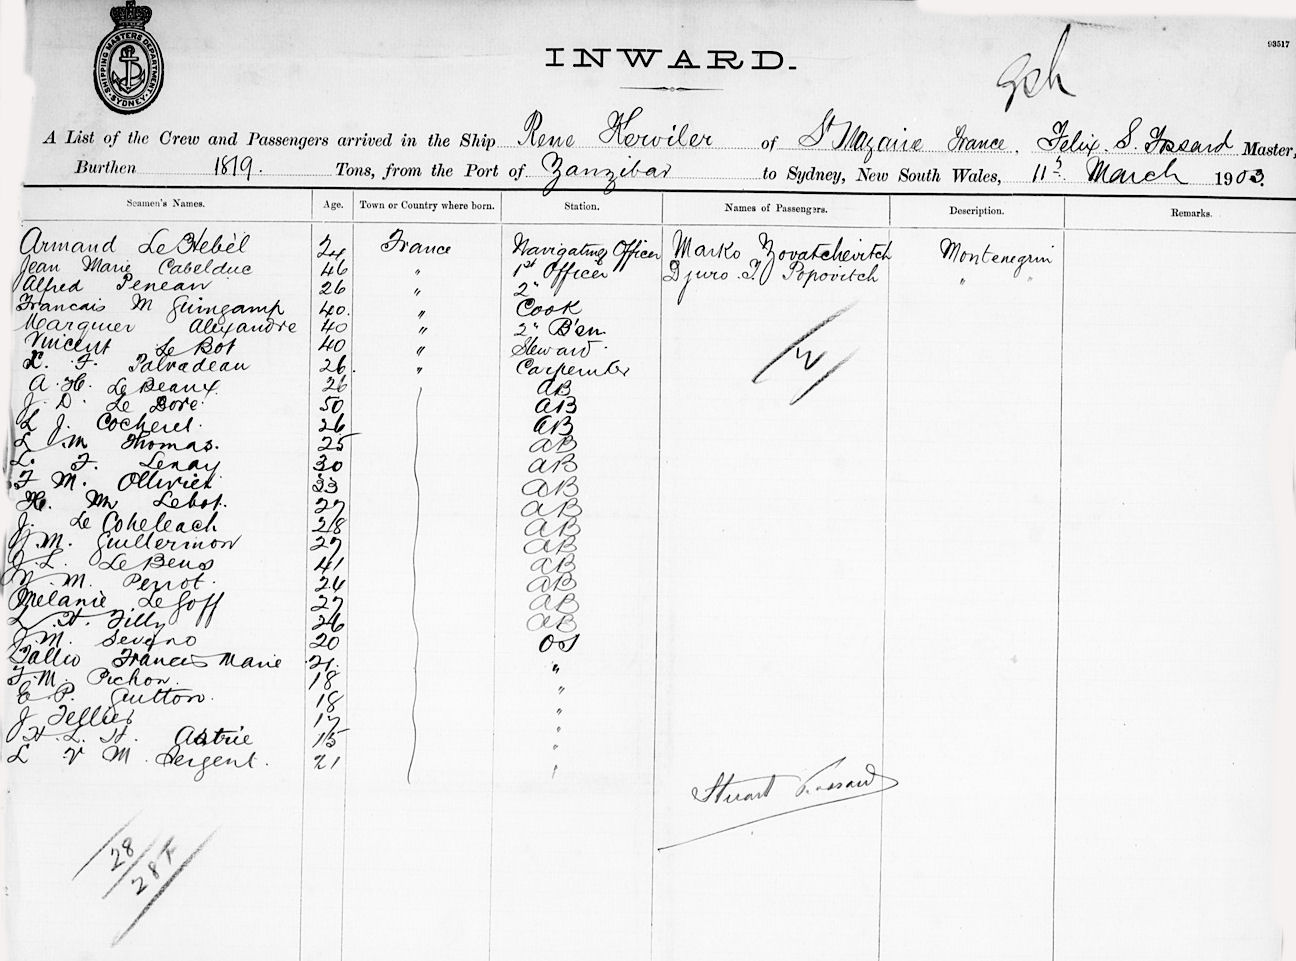 SHIPPING MASTERS DEPARTMENT SYDNEY
INWARD.
93517
A List of the Crew and Passengers arrived in the Ship Rene Kerviler of St Nazaire France, Felix S. Fossard Master,
Burthen 1819. Tons, from the Port of Zanzibar to Sydney, New South Wales, 11th March 1903.
Seamen's Names. Age. Town or Country where born. Station. Names of Passengers. Description. Remarks.
Armand Le Hebel 24 France Navigating Officer Marko Zovatchevitch Montenegrin
Jean Marie Cabelduc 46 " 1st Officer Djuro T. Popovitch " "
Alfred Penean 26 " 2"
Francais M Guingamp 40. " Cook
Marquier Alexandre 40 " 2" B'en
Vincent Le Bot 40 " Steward
L. F. Palvadeau 26. " Carpenter
2
A. H. Le Beaux 26 AB
J. D. Le Bore 50 AB
L J. Cocherel. 26 AB
L M Thomas. 25 AB
L. F. Lenay 30 AB
F M. Ollivier 33 AB
H. M Lebot. 27 AB
J. Le Coheleach 28 AB
J. M. Guillermon 27 AB
J. L. Le Beus 41 AB
Y. M. Perrot. 24 AB
Melanie Le Goff 27 AB
L. H. Tilly 26 AB
J. M. Seveno 20 OS
Tallio Frances Marie 21. "
F. M. Pichon. 18 "
E P. Guitton. 18 "
J Tellier 17 "
H. L. H. Astrie 15 "
L V M Sergent. 21 "
Stuart Fossard
28
28 F